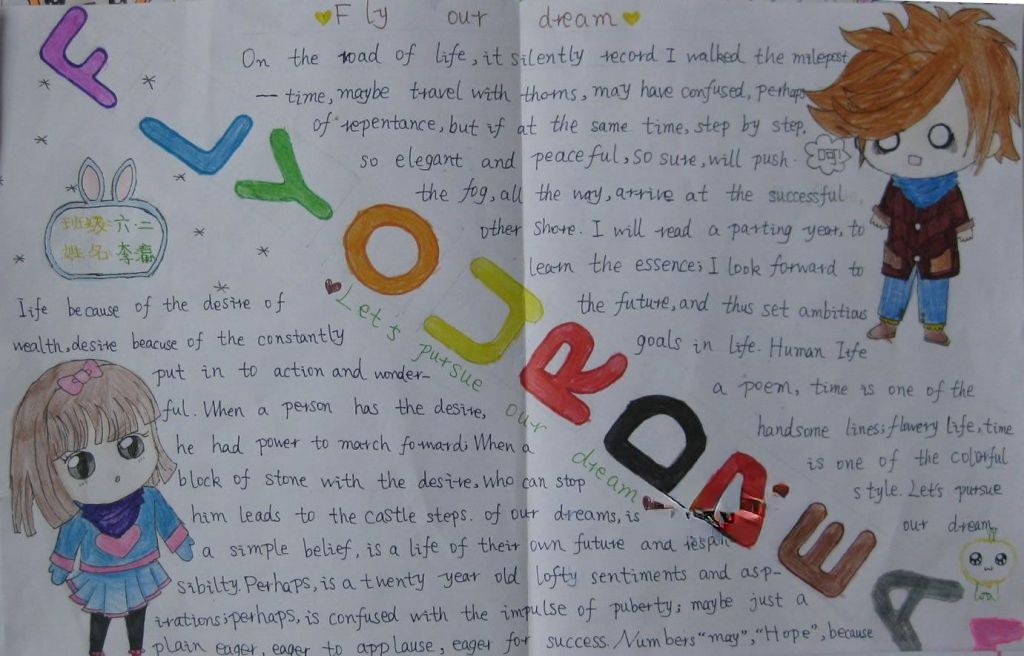 Fly our dream
On the road of life, it silently record I walked the milepost
— time, maybe travel with thorns, may have confused, perhaps
of repentance, but if at the same time, step by step,
so elegant and peaceful, so sure, will push
the fog, all the way, arrive at the successful
other shore. I will read a parting year, to
learn the essence; I look forward to
the future, and thus set ambitious
goals in life. Human life
a poem, time is one of the
handsome lines; flowery life, time
is one of the colorful
style. Let's pursue
our dream
呵!
班级:六.二
姓名:李
FLY OUR D EA
Let's pursue our dream
Life because of the desire of
wealth, desire beacuse of the constantly
put in to action and wonder-
ful. When a person has the desire,
he had power to march forward; When a
block of stone with the desire, who can stop
him leads to the castle steps. of our dreams, is
a simple belief, is a life of their own future and respon
sibilty. Perhaps, is a twenty year old lofty sentiments and asp-
irations; perhaps, is confused with the impulse of puberty; maybe just a
plain eager, eager to applause, eager for success. Numbers "may", "Hope", because